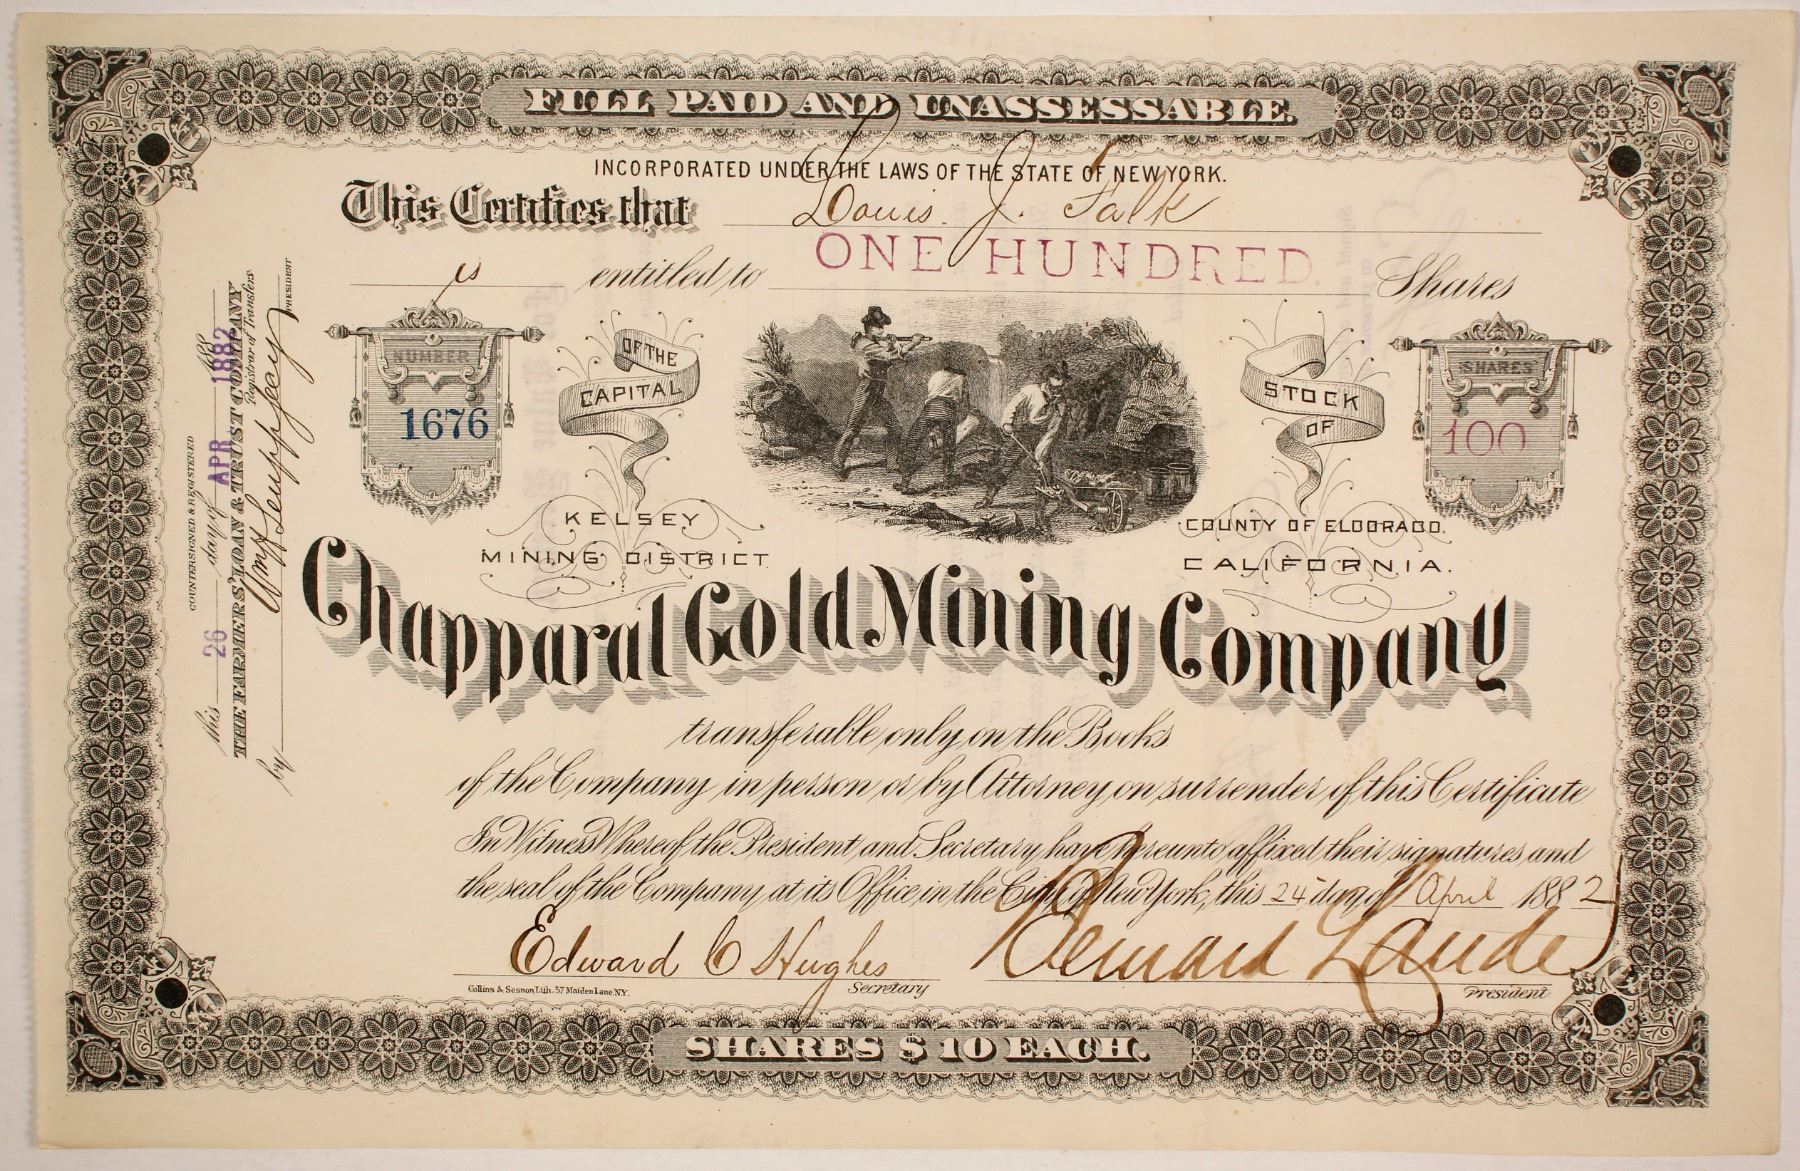 FULL PAID AND UNASSESSABLE.
INCORPORATED UNDER THE LAWS OF THE STATE OF NEW YORK.
This Certifies that Louis. J. Falk
is entitled to ONE HUNDRED. Shares
NUMBER
1676
OF THE
CAPITAL
STOCK
OF
SHARES
100
KELSEY
MINING DISTRICT
COUNTY OF ELDORADO.
CALIFORNIA.
Chapparal Gold Mining Company
transferable only on the Books
of the Company in person or by Attorney on surrender of this Certificate
In Witness Whereof the President and Secretary have hereunto affixed their signatures and
the seal of the Company at its Office in the City of New York, this 24 day of April 1882
Edward C Hughes
Secretary
Bernard
President
Collins & Sesnon, Lith. 57 Maiden Lane. N.Y.
SHARES $10 EACH.
COUNTERSIGNED & REGISTERED
this 26 day of APR 1882 188
THE FARMERS' LOAN & TRUST COMPANY
Registrar of Transfers
by Wm H
PRESIDENT